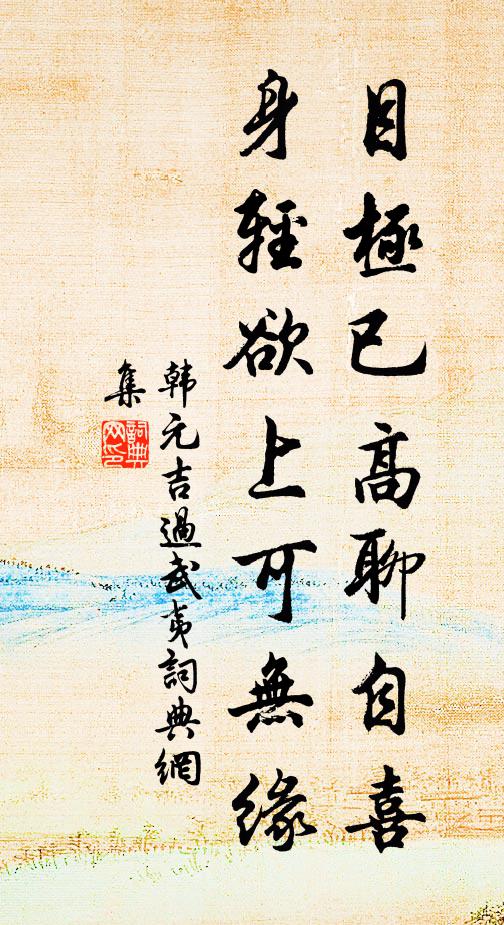 目極已高聊自喜
身輕欲上可無緣
韩元吉過武夷詞典網
集
詞典
网印